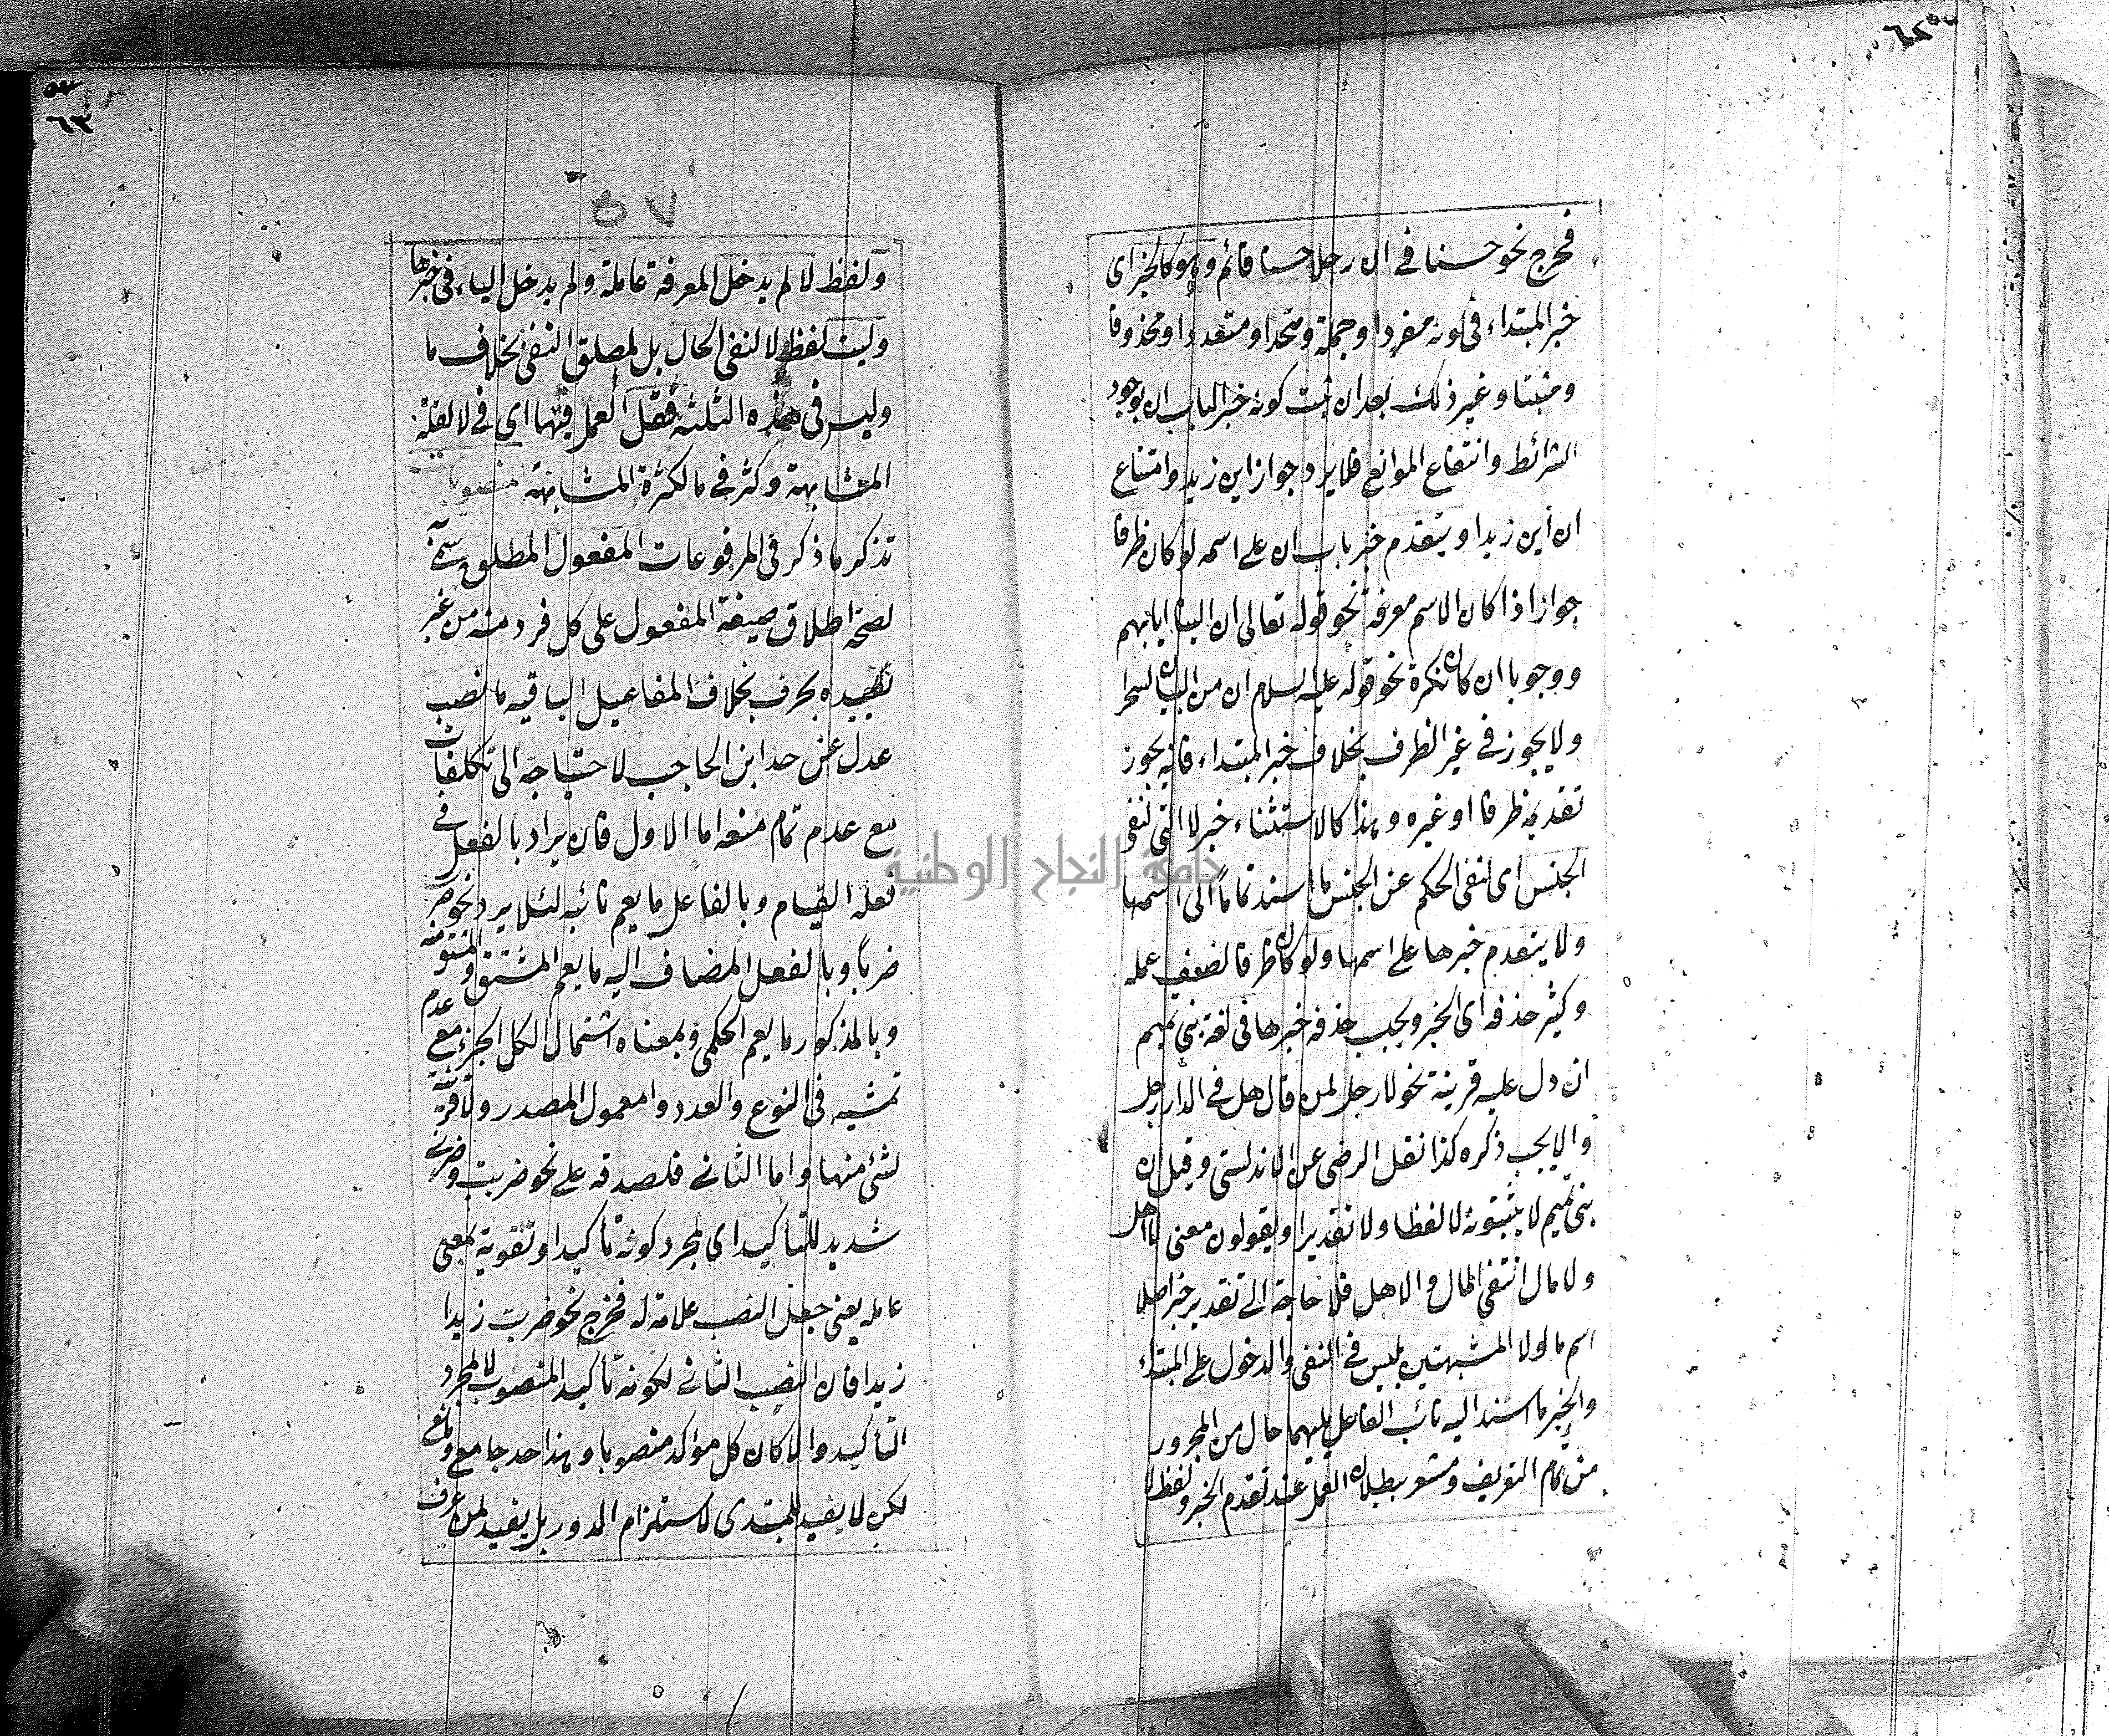 ٦٢
فخرج نحو حسنا في ان رجلا حسنا قائم وهو كالخبر اى
خبر المبتداء فى كونه مفردا وجملة ومتحدا ومتعددا ومحذوفا
ومثبتا وغير ذلك بعد ان ثبت كونه خبر الباب ان بوجود
الشرائط وانتفاع الموانع فلا يرد جواز اين زيد وامتناع
ان أين زيدا ويتقدم خبر باب ان على اسمه لو كان ظرفا
جوازا اذا كان الاسم معرفة نحو قوله تعالى ان الينا ايابهم
ووجوبا ان كان نكرة نحو قوله عليه السلام ان من البيان لسحرا
ولا يجوز في غير الظرف بخلاف خبر المبتداء فانه يجوز
تقديمه ظرفا او غيره وهذا كالاستثناء خبر لا التى لنفى
الجنس اى لنفى الحكم عن الجنس ما اسند تماما الى اسمها
ولا يتقدم خبرها على اسمها ولو كان ظرفا لضعف عمله
وكثير حذفه اى الخبر ويجب حذف خبرها فى لغة بنى تميم
ان دل عليه قرينة نحو لا رجل لمن قال هل في الدار رجل
والا يجب ذكره كذا نقل الرضى عن الاندلسى وقيل ان
بنى تميم لا يثبتونه لا لفظا ولا تقديرا ويقولون معنى لا اهل
ولا مال انتفى المال والاهل فلا حاجة الى تقدير خبر اصلا
اسم ما ولا المشبهتين بليس في النفى والدخول على المبتداء
والخبر ما اسند اليه نائب الفاعل يليهما حال من المجرور
من تمام التعريف ومشعر ببطلان العمل عند تقدم الخبر ولفظ لا
٦٣
٥٧
ولفظ لا لم يدخل المعرفة عاملة ولم يدخل الباء فى خبرها
وليت لفظ لا لنفى الحال بل لمطلق النفى بخلاف ما
وليس فى هذه الثلثة فقل العمل فيها اى في لا لقلة
المشابهة وكثر في ما لكثرة المشابهة المنصوبات
تذكر ما ذكر فى المرفوعات المفعول المطلق سمى به
لصحة اطلاق صيغة المفعول على كل فرد منه من غير
تقييده بحرف بخلاف المفاعيل الباقية ما نصب
عدل عن حد ابن الحاجب لاحتياجه الى تكلفات
مع عدم تمام منعه اما الاول فان يراد بالفعل في
فعله القيام وبالفاعل ما يعم نائبه لئلا يرد نحو ضرب
ضربا وبالفعل المضاف اليه ما يعم المشتق و
وبالمذكور ما يعم الحكمى وبمعناه اشتمال الكل الجزء مع عدم
تمشيه فى النوع والعدد وا معمول المصدر ولا قرينة
لشئ منها واما الثانى فلصدقه على نحو ضربت وضربى
شديد للتأكيد اي لمجرد كونه تأكيدا وتقوية لمعنى
عامله يعنى جعل النصب علامة له فخرج نحو ضربت زيدا
زيدا فان النصب الثانى لكونه تأكيد المنصوب لا لمجرد
التأكيد والا كان كل مؤكد منصوبا وهذا حد جامع ومانع
لكن لا يفيد للمبتدى لاستلزام الدور بل يفيد لمن عرف
جامعة النجاح الوطنية